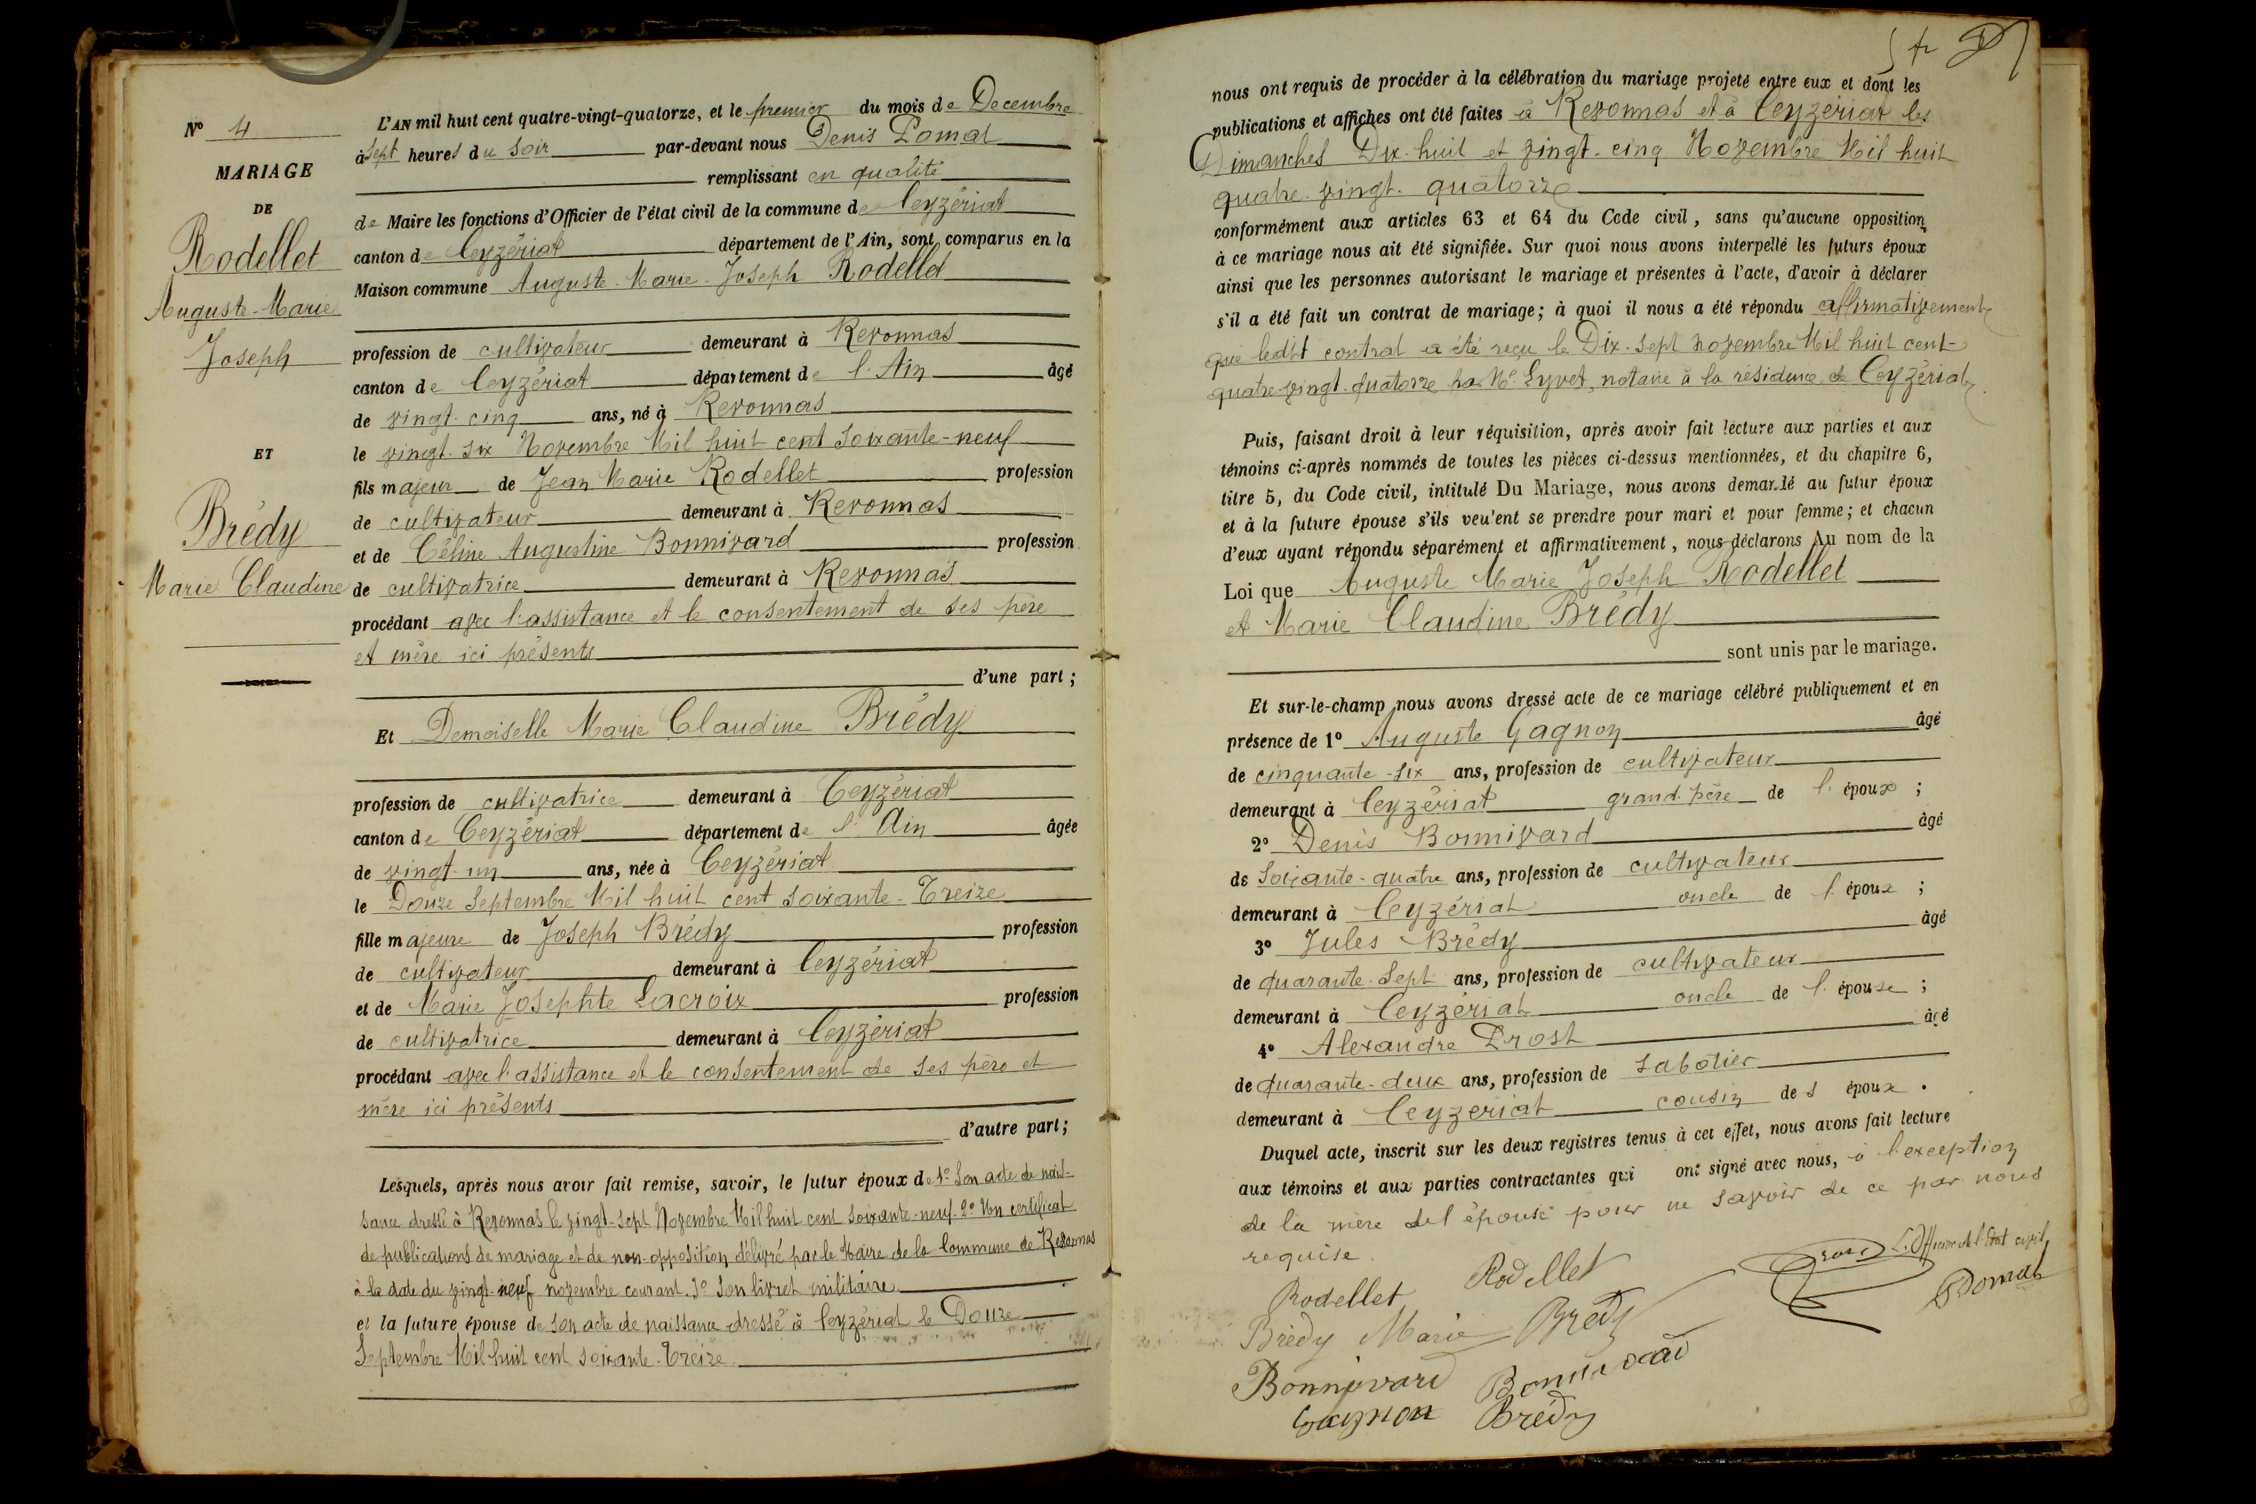 N° 4
MARIAGE
DE
Rodellet
Auguste-Marie
Joseph
ET
Brédy
Marie Claudine
L'AN mil huit cent quatre-vingt-quatorze, et le premier du mois de Decembre
à sept heures du soir par-devant nous Denis Pomat
remplissant en qualité
de Maire les fonctions d'Officier de l'état civil de la commune de Ceyzériat
canton de Ceyzériat département de l'Ain, sont comparus en la
Maison commune Auguste-Marie-Joseph Rodellet
profession de cultivateur demeurant à Revonnas
canton de Ceyzériat département de l'Ain âgé
de vingt-cinq ans, né à Revonnas
le vingt-six Novembre Mil huit cent soixante-neuf
fils majeur de Jean Marie Rodellet profession
de cultivateur demeurant à Revonnas
et de Céline Augustine Bonnivard profession
de cultivatrice demeurant à Revonnas
procédant avec l'assistance et le consentement de ses père
et mère ici présents
d'une part ;
Et Demoiselle Marie Claudine Brédy
profession de cultivatrice demeurant à Ceyzériat
canton de Ceyzériat département de l'Ain âgée
de vingt-un ans, née à Ceyzériat
le Douze Septembre Mil huit cent soixante-Treize
fille majeure de Joseph Brédy profession
de cultivateur demeurant à Ceyzériat
et de Marie Josephte Lacroix profession
de cultivatrice demeurant à Ceyzériat
procédant avec l'assistance et le consentement de ses père et
mère ici présents
d'autre part ;
Lesquels, après nous avoir fait remise, savoir, le futur époux de 1° Son acte de nais-
sance dressé à Revonnas le vingt-sept Novembre Mil huit cent soixante-neuf. 2° Un certificat
de publications de mariage et de non-opposition délivré par le Maire de la Commune de Revonnas
à la date du vingt-neuf novembre courant. 3° Son livret militaire
et la future épouse de son acte de naissance dressé à Ceyzériat le Douze
Septembre Mil huit cent soixante-Treize
nous ont requis de procéder à la célébration du mariage projeté entre eux et dont les
publications et affiches ont été faites à Revonnas et à Ceyzériat les
Dimanches Dix-huit et vingt-cinq Novembre Mil huit
quatre-vingt-quatorze
conformément aux articles 63 et 64 du Code civil, sans qu'aucune opposition
à ce mariage nous ait été signifiée. Sur quoi nous avons interpellé les futurs époux
ainsi que les personnes autorisant le mariage et présentes à l'acte, d'avoir à déclarer
s'il a été fait un contrat de mariage ; à quoi il nous a été répondu affirmativement
que ledit contrat a été reçu le Dix-sept novembre Mil huit cent-
quatre-vingt-quatorze par Me Lyvet, notaire à la résidence de Ceyzériat
Puis, faisant droit à leur réquisition, après avoir fait lecture aux parties et aux
témoins ci-après nommés de toutes les pièces ci-dessus mentionnées, et du chapitre 6,
titre 5, du Code civil, intitulé Du Mariage, nous avons demandé au futur époux
et à la future épouse s'ils veulent se prendre pour mari et pour femme ; et chacun
d'eux ayant répondu séparément et affirmativement, nous déclarons Au nom de la
Loi que Auguste Marie Joseph Rodellet
et Marie Claudine Brédy
sont unis par le mariage.
Et sur-le-champ nous avons dressé acte de ce mariage célébré publiquement et en
présence de 1° Auguste Gagnon âgé
de cinquante-six ans, profession de cultivateur
demeurant à Ceyzériat grand-père de l'époux ;
2° Denis Bonnivard âgé
de Soixante-quatre ans, profession de cultivateur
demeurant à Ceyzériat oncle de l'époux ;
3° Jules Brédy âgé
de quarante-sept ans, profession de cultivateur
demeurant à Ceyzériat oncle de l'épouse ;
4° Alexandre Prost âgé
de quarante-deux ans, profession de sabotier
demeurant à Ceyzeriat cousin des époux.
Duquel acte, inscrit sur les deux registres tenus à cet effet, nous avons fait lecture
aux témoins et aux parties contractantes qui ont signé avec nous, à l'exception
de la mère de l'épouse pour ne savoir de ce par nous
requise
Rodellet Rodellet L'Officier de l'Etat civil
Brédy Marie Brédy DPomat
Bonnivard Bonnivard
Gagnon Brédy